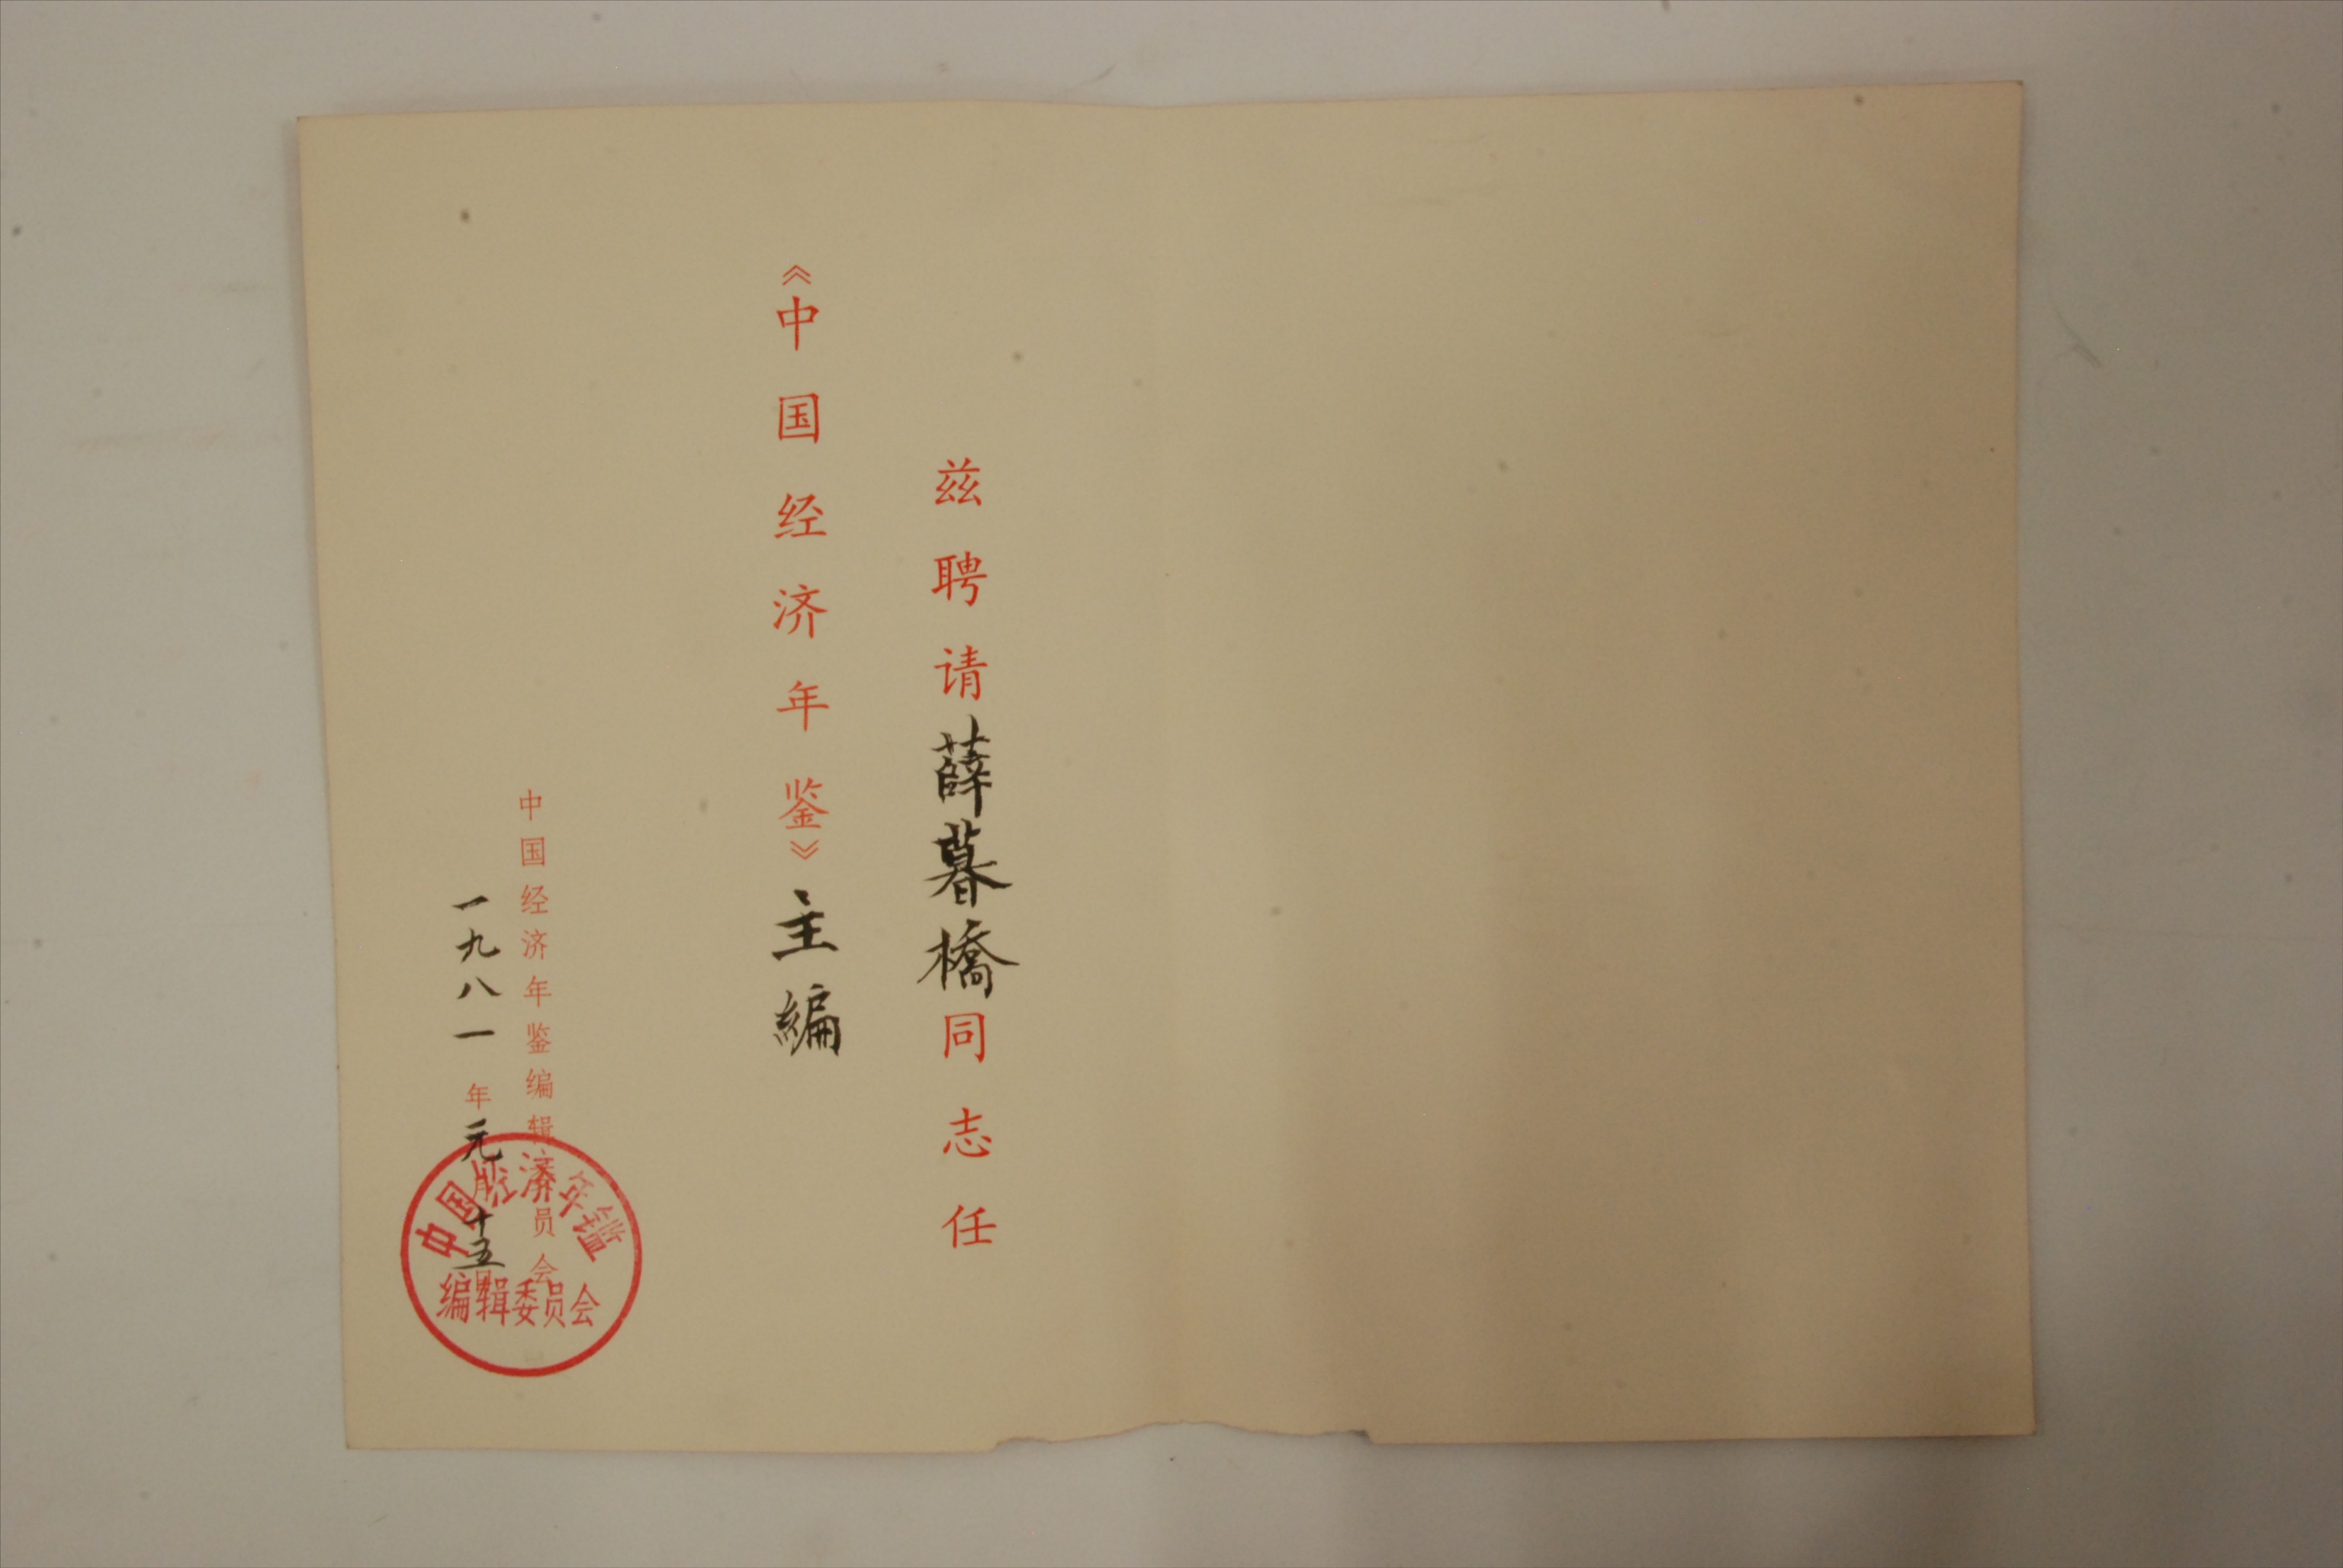 兹聘请薛暮橋同志任
《中国经济年鉴》主編
中国经济年鉴编辑委员会
一九八一年元月十五日
中国经济年鑑
编辑委员会